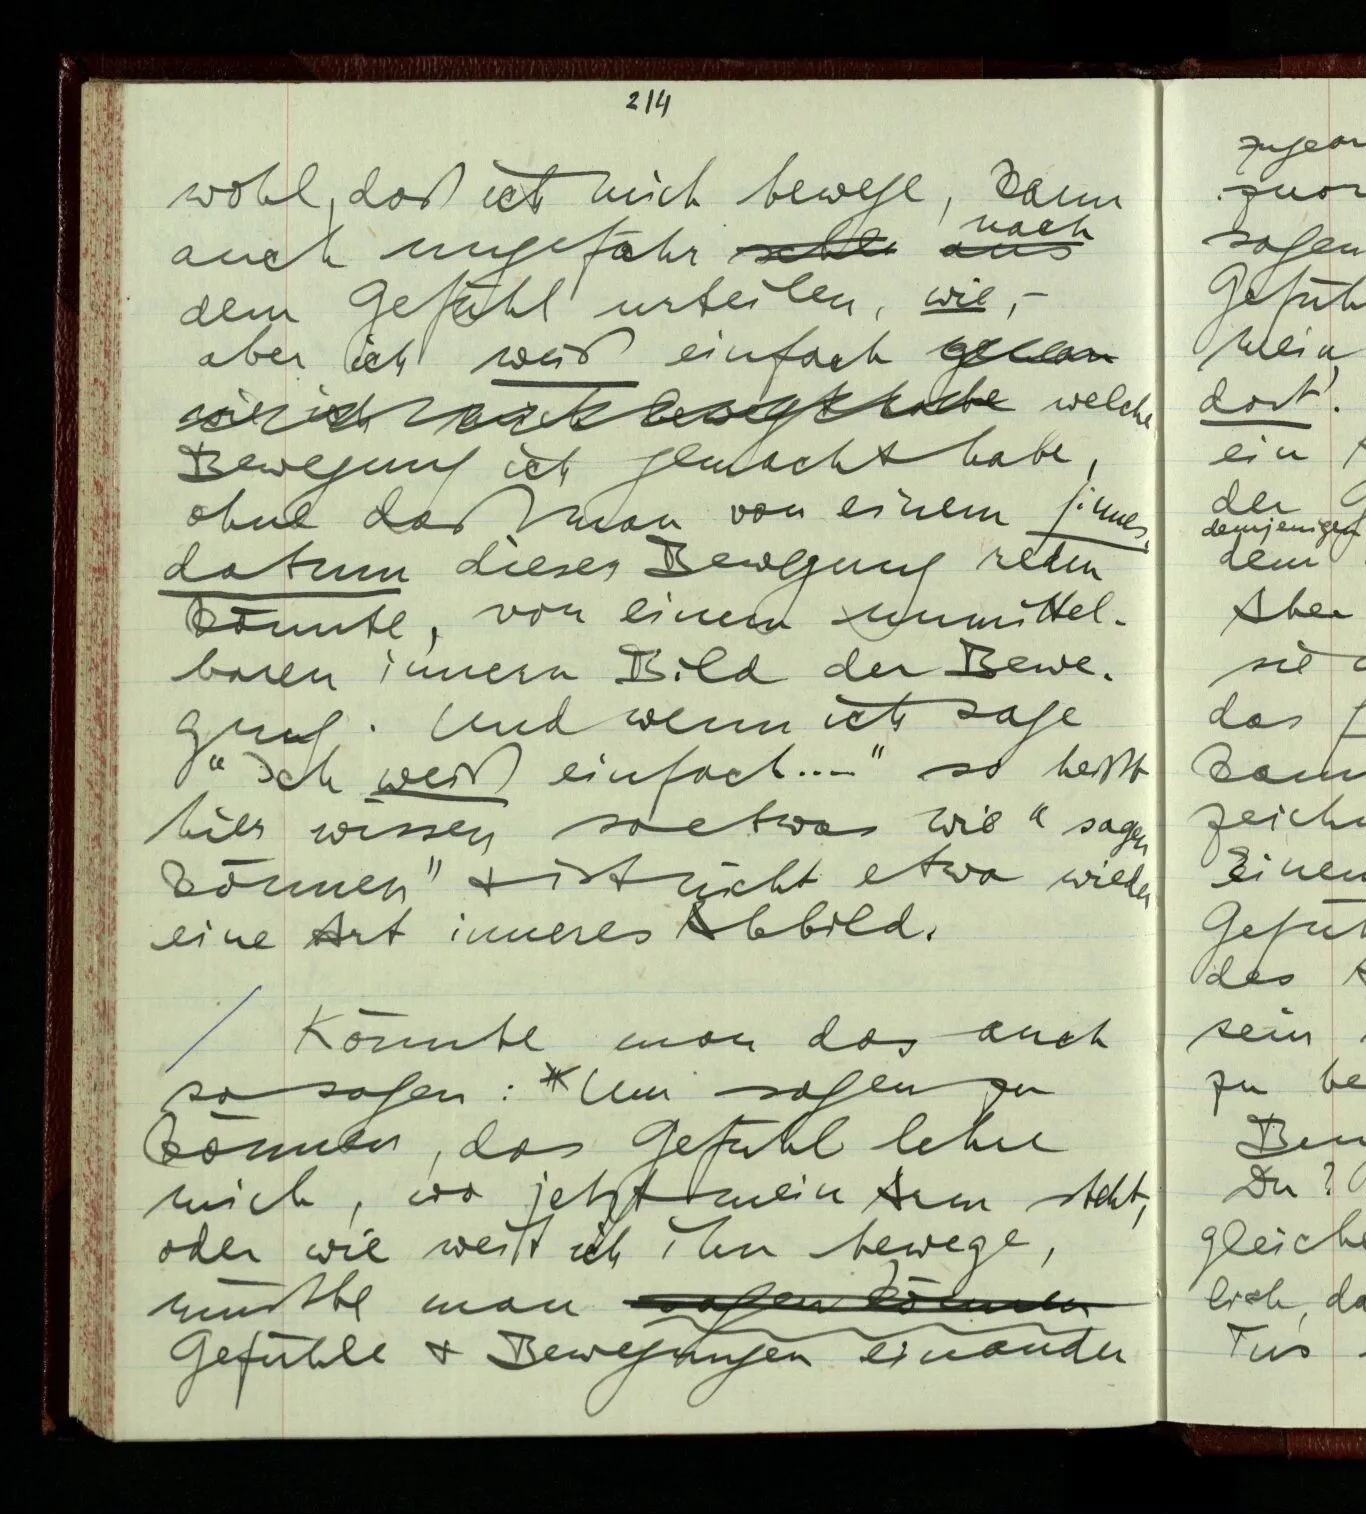 214
wohl, daß ich mich bewege, kann
nach
auch ungefähr aus
dem Gefühl urteilen, wie, –
aber ich weiß einfach genau
wie ich mich bewegt habe welche
Bewegung ich gemacht habe,
ohne daß man von einem Sinnes-
datum dieser Bewegung reden
könnte, von einem unmittel-
baren innern Bild der Bewe-
gung. Und wenn ich sage
"Ich weiß einfach...." so heißt
hier wissen so etwas wie "sagen
können" & ist nicht etwa wieder
eine Art inneres Abbild.
/ Könnte man das auch
so sagen: Um sagen zu
können, das Gefühl lehre
mich, wo jetzt mein Arm steht,
oder wie weit ich ihn bewege,
müßte man sagen können
Gefühle & Bewegungen einander
sagen
Gefüh
mein
dort".
ein
der G
demjenigen
dem
Aber
sie
das
kann
zeich
einem
Gefüh
des A
sein
zu be
Du?
gleiche
lich, da